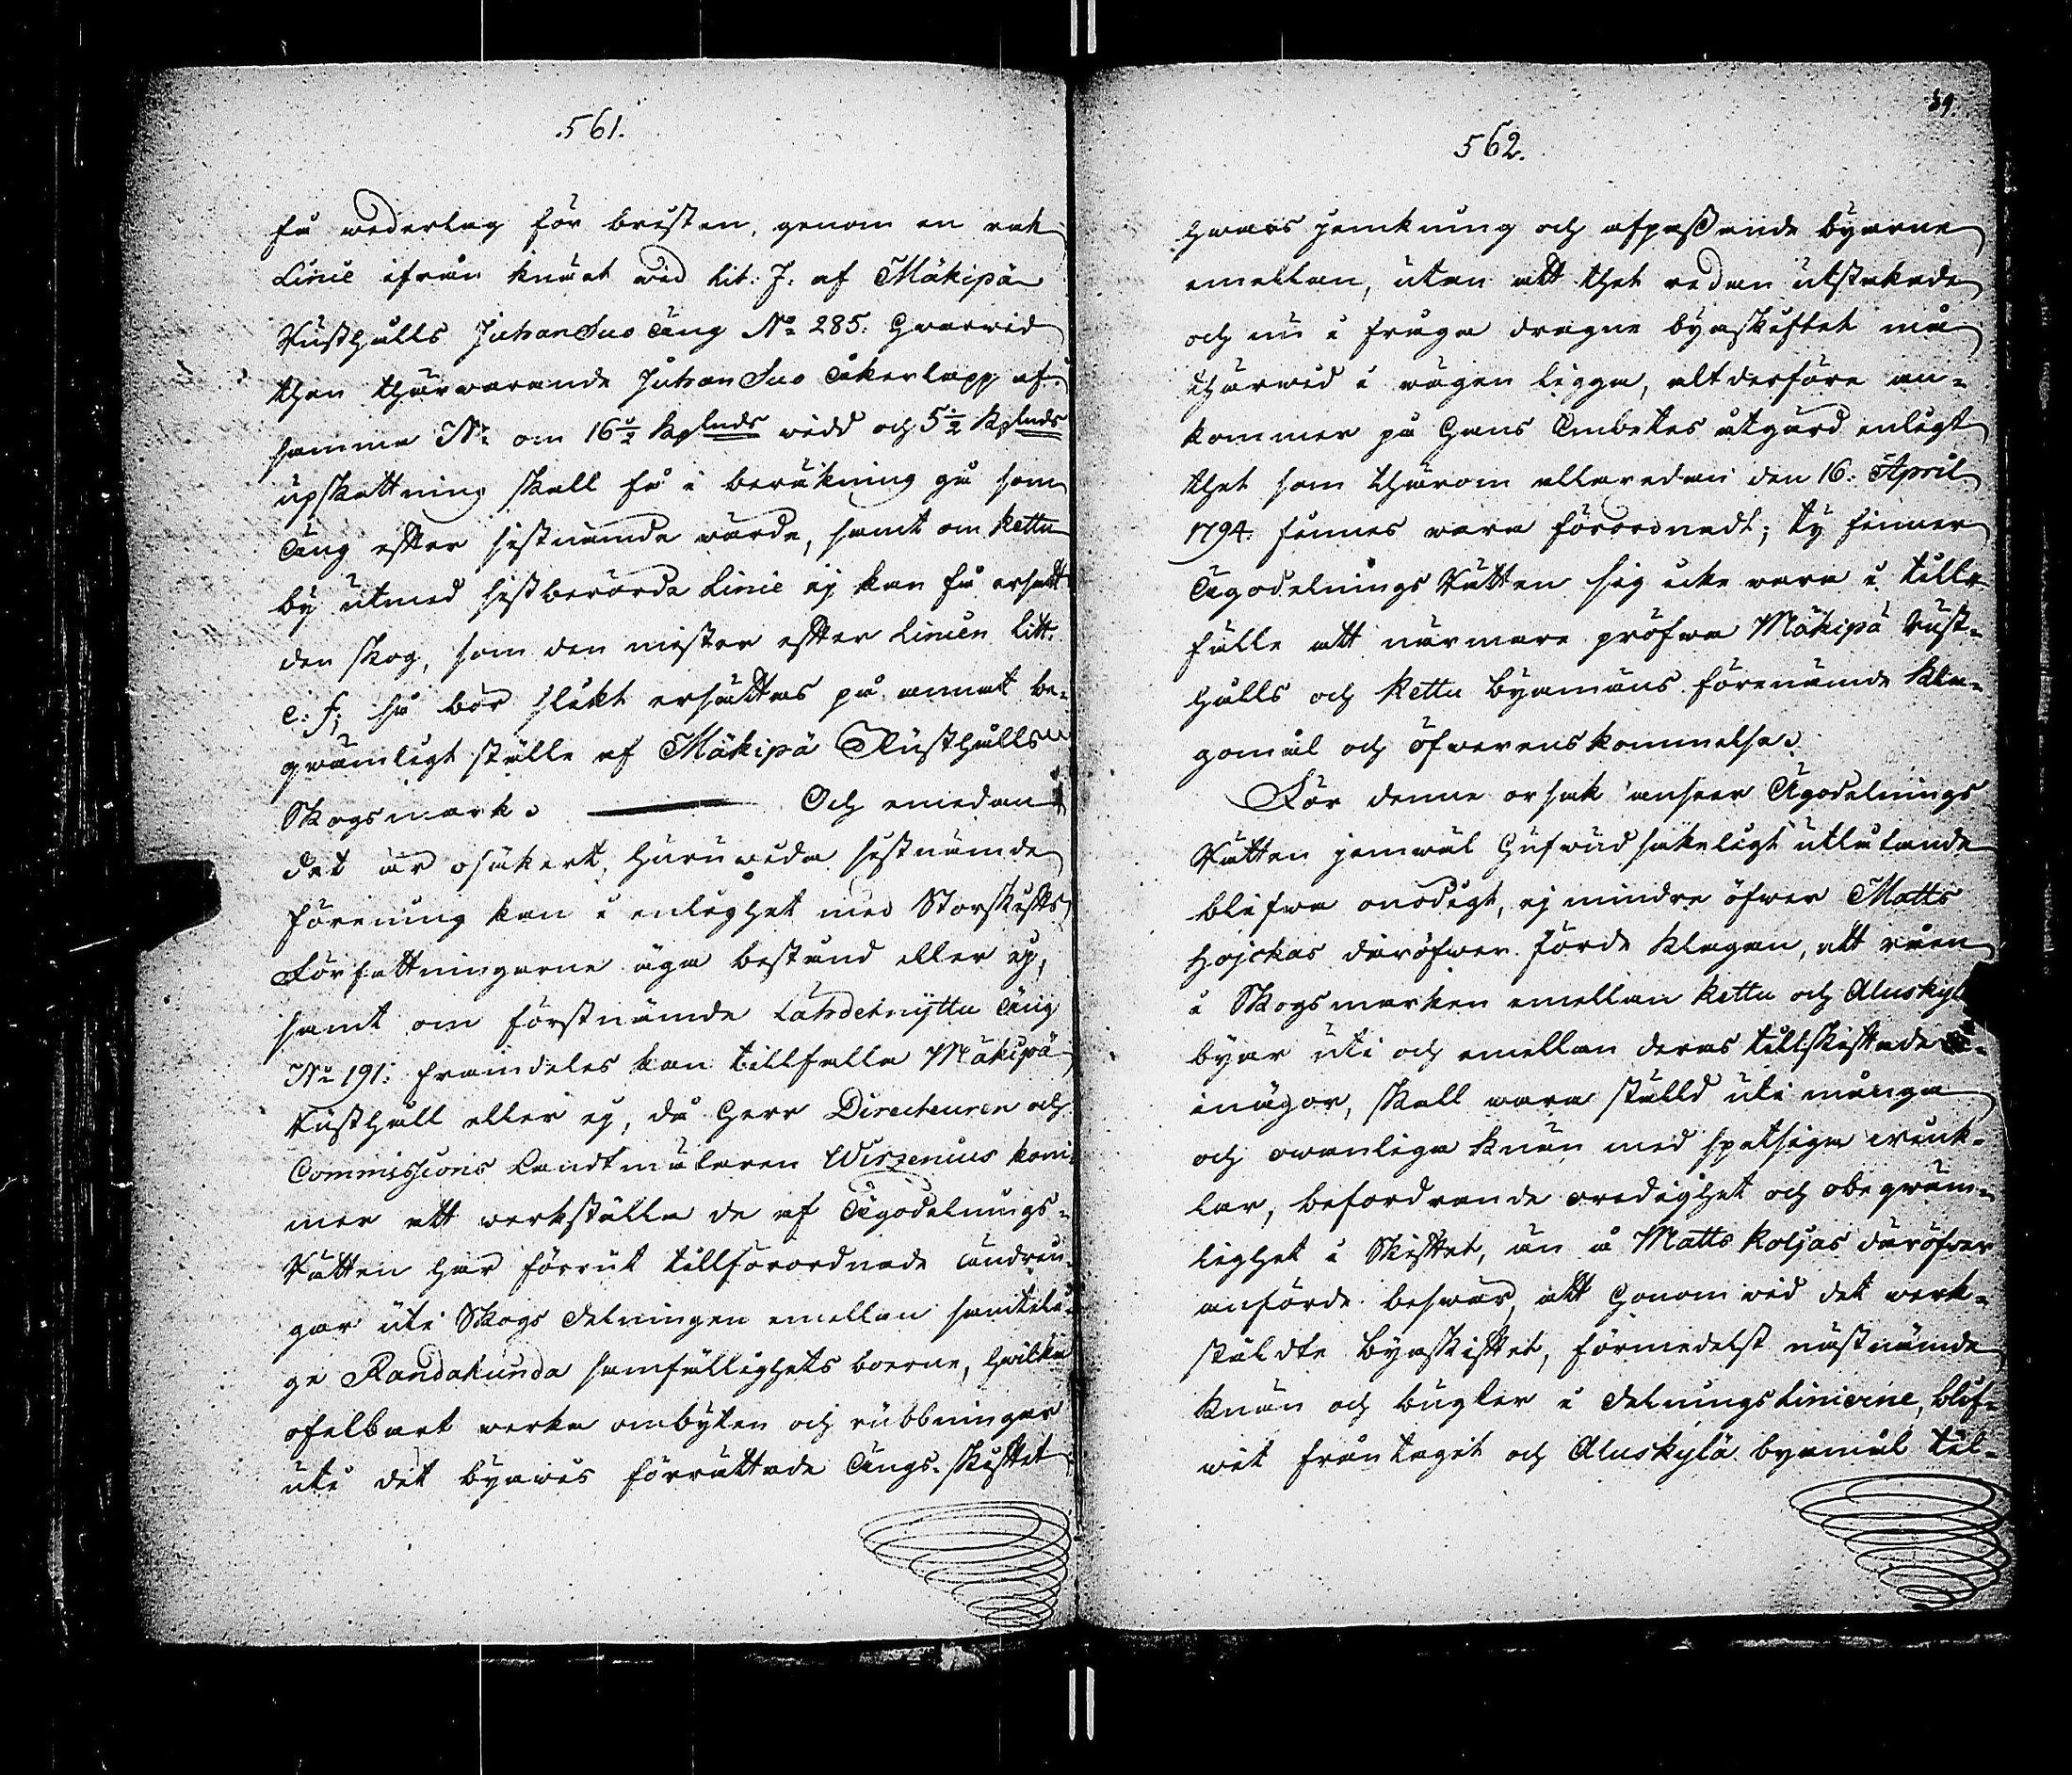 561.
få wederlag för bristen, genom en rak
Linie ifrån knäet wid Lit: J: af Mäkipä
Rusthålls Juhansuo äng No 285: hwarvid
then thärwarande Juhansuo åkerlapp af
samma No om 16 1/2 kplnds widd och 5 1/2 kplnds
upskattning skall få i beräkning gå som
äng efter sistnämde wärde, samt om Kettu
by utmed sistberörde Linie ej kan få ersatt
den skog, som den mister efter Linien Litt:
e: f; så bör slikt ersättas på annat be-
qwämligt ställe af Mäkipä Rusthålls
Skogsmark. Och emedan
det är osäkert, huruwida sistnämde
förening kan i enlighet med Storskiftes
Författningarne äga bestånd eller ej,
samt om förstnämde Lahdetnyttu äng
No 191: framdeles kan tillfalla Mäkipä
Rusthåll eller ej, då Herr Directeuren och
Commissions Landtmätaren Wirzenius kom-
mer att werkställa de af Ägodelnings-
Rätten här förrut tillförordnade ändrin-
gar uti Skogs delningen emellan samteli-
ge Randakunda samfällighets boerne, hwilka
ofelbart werka ombyten och rubbningar
uti det byawis förrättade Ängs-skiftet
39.
562.
hwars jemkning och afpassande byarne
emellan, utan att thet redan utstakade
och nu i fråga dragne byaskiftet må
thärwid i wägen ligga, altderföre an-
kommer på Hans Embetes åtgärd enligt
thet som thärom allaredan den 16: April
1794. finnes wara förordnadt; ty finner
Ägodelnings Rätten sig icke wara i till-
fälle att närmare pröfwa Mäkipä Rust-
hålls och Kettu byamäns förenämde kla-
gomål och öfwerenskommelse.
För denne orsak anseer Ägodelnings
Rätten jemwäl hufwudsakeligt utlåtande
blifwa onödigt, ej mindre öfwer Matts
Hojckas däröfwer förde klagan, att råen
i Skogsmarken emellan Kettu och Aluskyl
byar uti och emellan deras tillskiftade
inägor, skall wara ställd uti många
och owanliga knän med spetsiga wink-
lar, befordrande oredighet och obeqwäm-
lighet i Skiftet, än å Matts Koljas däröfwer
anförde beswär, att honom wid det werk-
stäldte byaskiftet, förmedelst nästnämde
knän och bugter i delningsLinierne, blif-
wit fråntagit och Aluskylä byamål til-